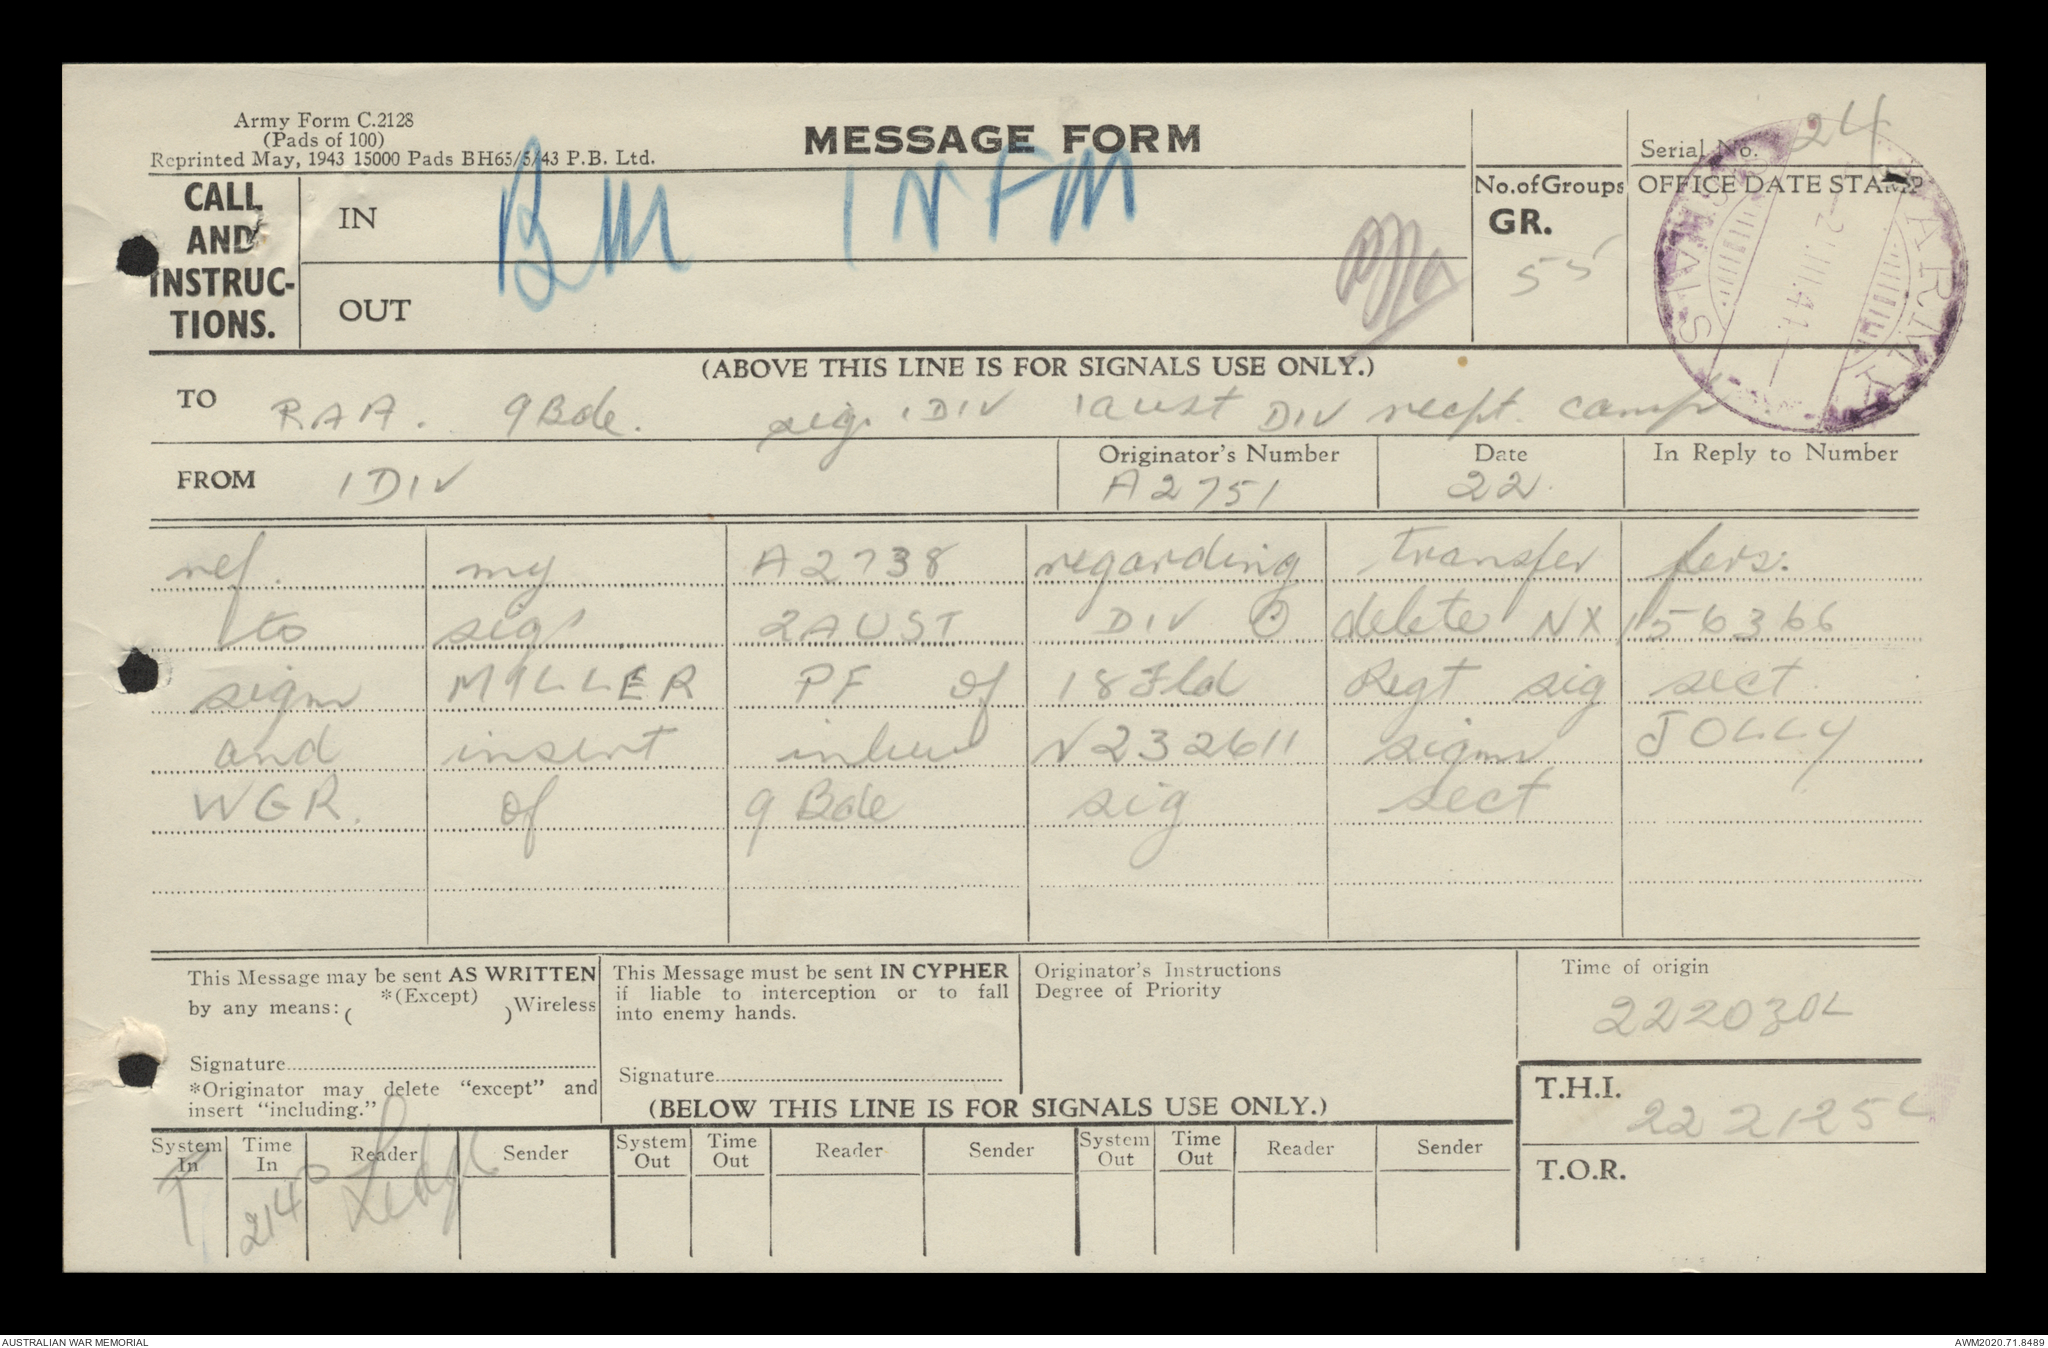 Army Form C.2128
(Pads of 100)
Reprinted May, 1943 15000 Pads BH65/5/43 P.B. Ltd.
MESSAGE FORM
Serial No. 24
CALL AND INSTRUC-TIONS.
IN
BM INFM
OUT
No. of Groups
GR.
55
OFFICE DATE STAMP
SIGNALS
ARMY
(ABOVE THIS LINE IS FOR SIGNALS USE ONLY.)
TO RAA. 9Bde. sig. 1DIV 1aust DIV recpt. camp
FROM 1DIV
Originator's Number
A2751
Date
22.
In Reply to Number
ref. my A2738 regarding transfer pers.
to sigs 2AUST DIV ⊙ delete NX156366
sigm MILLER PF of 18Fld Regt sig sect
and insert inlieu N232611 sigm JOLLY
WGR. of 9Bde sig sect
This Message may be sent AS WRITTEN
by any means: ( *(Except) ) Wireless
Signature
*Originator may delete "except" and
insert "including."
This Message must be sent IN CYPHER
if liable to interception or to fall
into enemy hands.
Signature
Originator's Instructions
Degree of Priority
Time of origin
222030L
(BELOW THIS LINE IS FOR SIGNALS USE ONLY.)
T.H.I. 222125L
T.O.R.
System In Time In Reader Sender System Out Time Out Reader Sender System Out Time Out Reader Sender
2140
AUSTRALIAN WAR MEMORIAL
AWM2020.71.8489